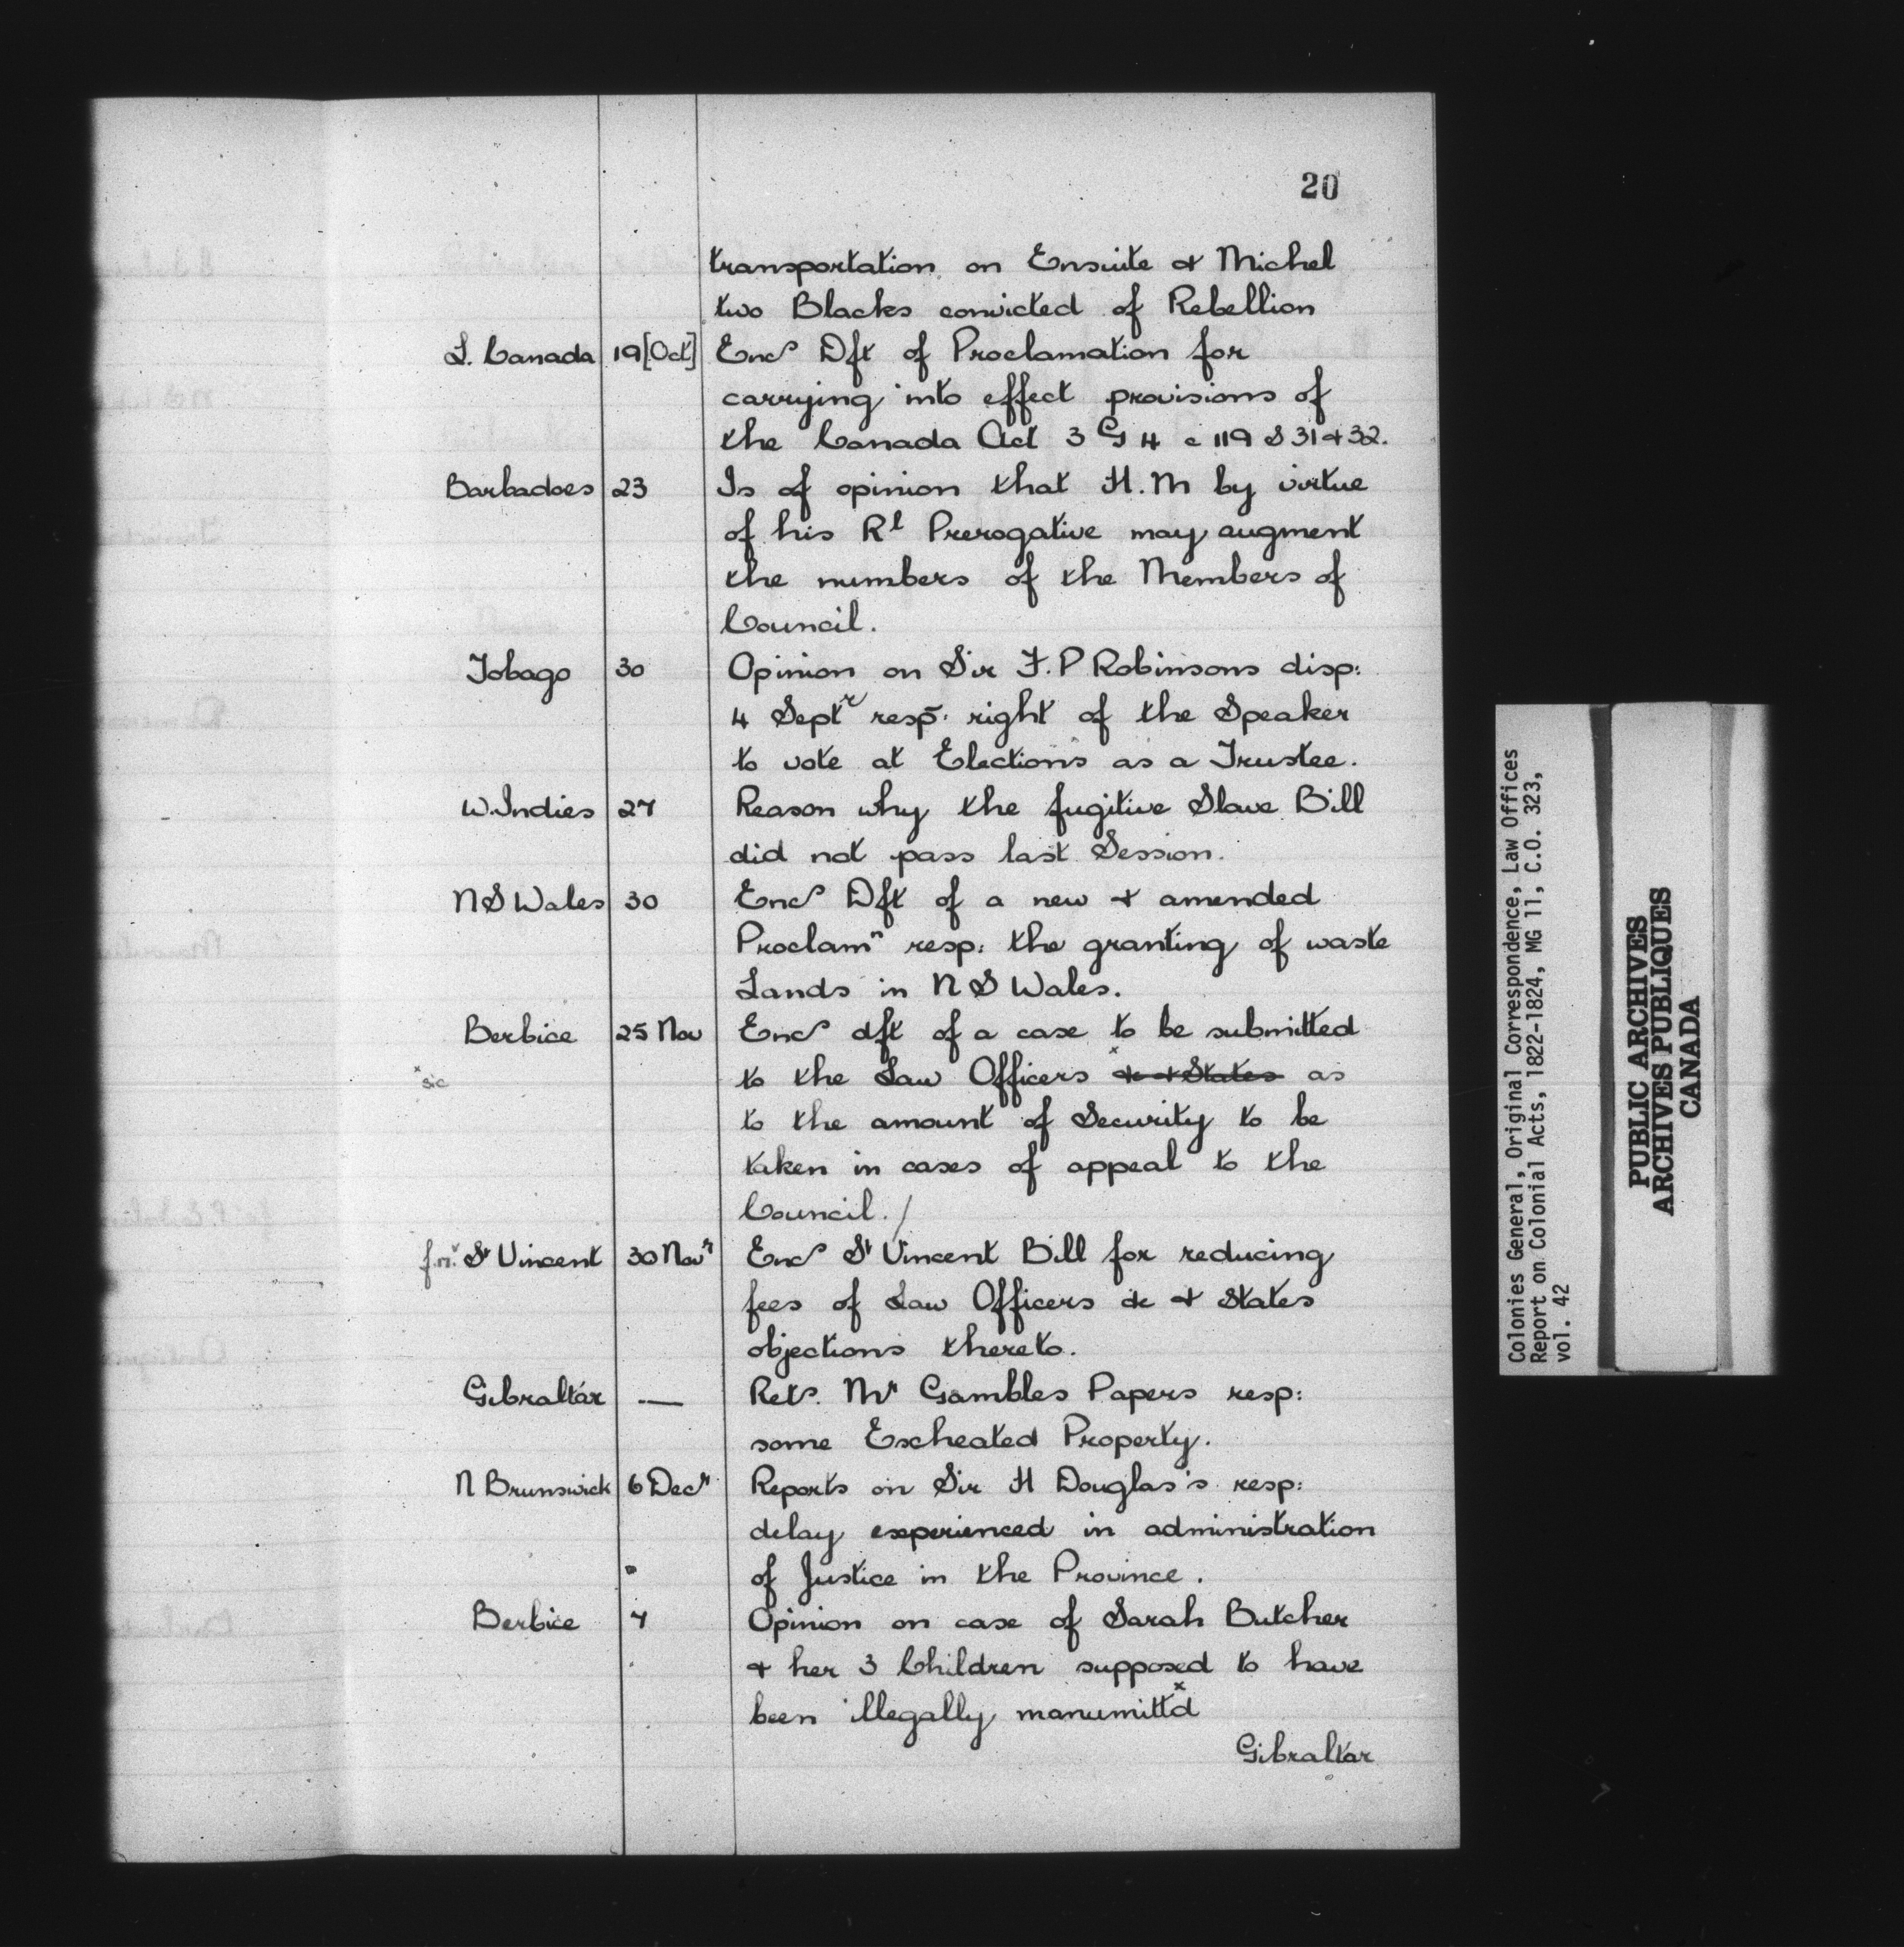 20
transportation on Ensuite & Michel
two Blacks convicted of Rebellion
L. Canada 19 [Oct] Encs Dft of Proclamation for
carrying into effect provisions of
the Canada Act 3 G 4 c 119 S 31 & 32.
Barbadoes 23 Is of opinion that H.M by virtue
of his Rl Prerogative may augment
the numbers of the Members of
Council.
Tobago 30 Opinion on Sir F. P Robinsons disp:
4 Septr resp: right of the Speaker
to vote at Elections as a Trustee.
W. Indies 27 Reason why the fugitive Slave Bill
did not pass last Session.
N S Wales 30 Encs Dft of a new & amended
Proclamn resp: the granting of waste
Lands in N S Wales.
Berbice 25 Nov Encs dft of a case to be submitted
x sic to the Law Officers x &c & States as
to the amount of Security to be
taken in cases of appeal to the
Council. /
St Vincent 30 Novr Encs St Vincent Bill for reducing
fees of Law Officers &c & States
objections thereto.
Gibraltar — Rets. Mr Gambles Papers resp:
some Escheated Property.
N Brunswick 6 Decr Reports on Sir H Douglas's resp:
delay experienced in administration
of Justice in the Province.
Berbice 7 Opinion on case of Sarah Butcher
& her 3 Children supposed to have
been illegally manumitt'd x
Gibraltar
Colonies General, Original Correspondence, Law Offices
Report on Colonial Acts, 1822-1824, MG 11, C.O. 323,
vol. 42
PUBLIC ARCHIVES
ARCHIVES PUBLIQUES
CANADA